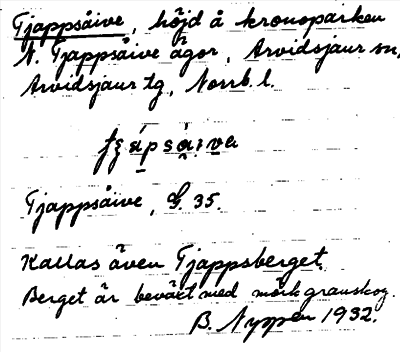 Tjappsåive, höjd å kronoparken
N. Tjappsåive ägor, Arvidsjaur sn,
Arvidsjaur tg, Norrb. l.
Tjappsåive, G. 35.
Kallas även Tjappsberget.
Berget är beväxt med mörk granskog.
B. Nyppen 1932.